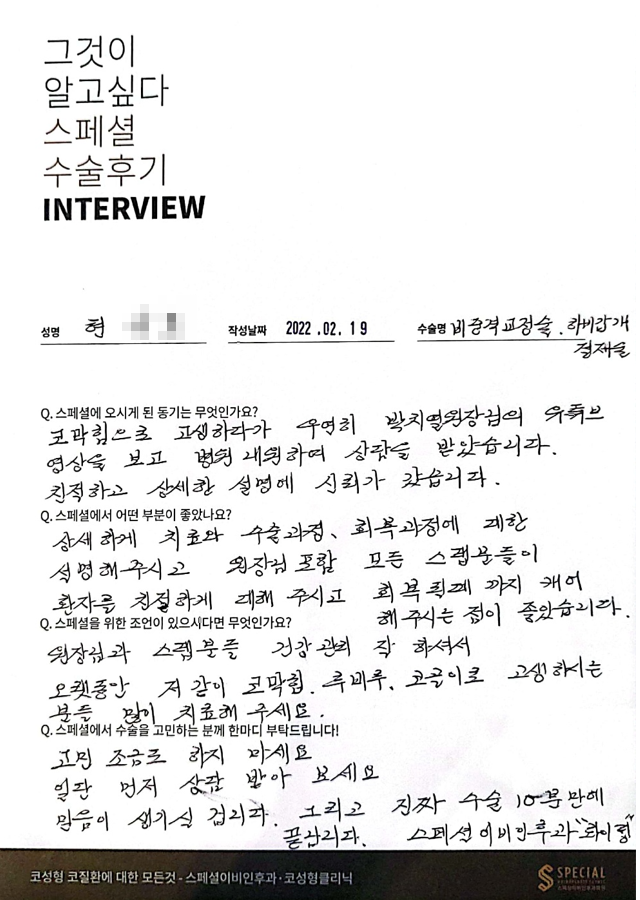 그것이
알고싶다
스페셜
수술후기
INTERVIEW
성명 현 작성날짜 2022.02.19 수술명 비중격교정술. 하비갑개
절제술
Q. 스페셜에 오시게 된 동기는 무엇인가요?
코막힘으로 고생하다가 우연히 박치열원장님의 유튜브
영상을 보고 병원 내원하여 상담을 받았습니다.
친절하고 상세한 설명에 신뢰가 갔습니다.
Q. 스페셜에서 어떤 부분이 좋았나요?
상세하게 치료와 수술과정, 회복과정에 대한
설명해주시고 원장님 포함 모든 스탭분들이
환자를 친절하게 대해 주시고 회복 까지 케어
해주시는 점이 좋았습니다.
Q. 스페셜을 위한 조언이 있으시다면 무엇인가요?
원장님과 스탭분들 건강관리 잘 하셔서
오랫동안 저 같이 코막힘, 코골이로 고생하시는
분들 많이 치료해 주세요.
Q. 스페셜에서 수술을 고민하는 분께 한마디 부탁드립니다!
고민 조금도 하지 마세요
일단 먼저 상담 받아 보세요
믿음이 생기실 겁니다. 그리고 진짜 수술 10분만에
끝납니다. 스페셜이비인후과 "화이팅"
코성형 코질환에 대한 모든것 - 스페셜이비인후과·코성형클리닉
SPECIAL